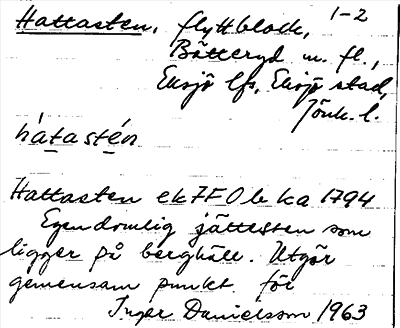 1-2
Hattasten, flyttblock,
Bätteryd m. fl.,
Eksjö lfs, Eksjö stad,
Jönk. l.
hátastén
Hattasten ek 7F0b ka 1794
Egendomlig jättesten som
ligger på berghäll. Utgör
gemensam punkt för
Inger Danielsson 1963